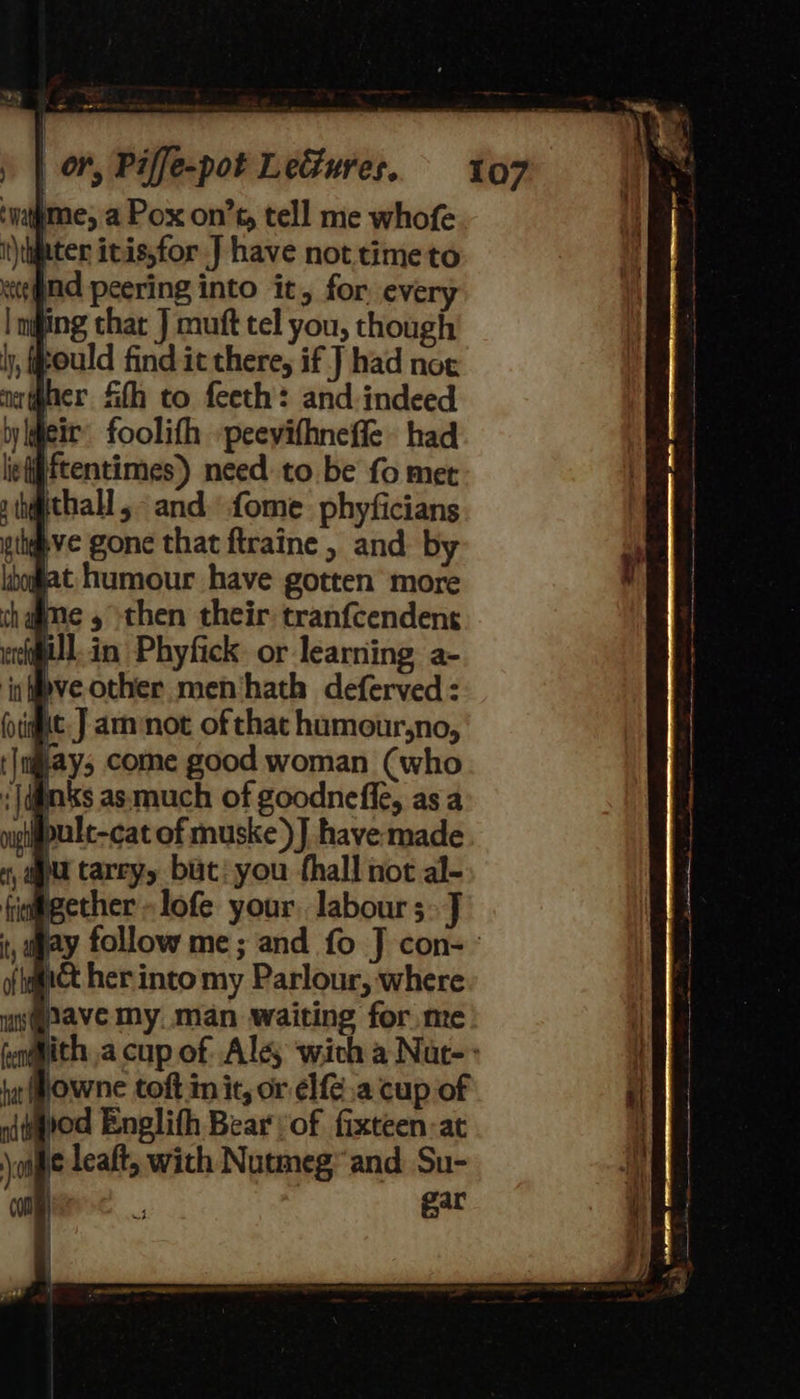 or, Piſſe-pot Lectures. 107
me, a Pox on't, tell me whoſe
it is, for J have not time to
peering into it, for every
that J muſt tel you, though
find it there, if J had not
fiſh to ſeeth: and indeed
fooliſh peeviſhneſſe had
need to be ſo met
and ſome phyſicians
gone that ſtraine, and by
humour have gotten more
then their tranſcendent
in Phyſick or learning a-
other men hath deſerved:
J am not of that humour, no,
come good woman (who
as much of goodneſſe, as a
cat of muske) J have made
tarry, but you ſhall not al-
loſe your labour; J
follow me; and ſo J con-
her into my Parlour, where
my man waiting for me
a cup of Ale, with a Nut-
toſt in it, or elſe a cup of
Engliſh Bear of ſixteen at
leaſt, with Nutmeg and Su-
gar